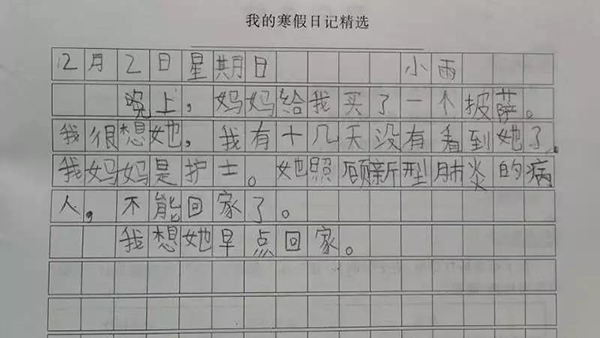 我的寒假日记精选
2月2日星期日 小雨
晚上，妈妈给我买了一个披萨。
我很想她，我有十几天没有看到她了。
我妈妈是护士。她照顾新型肺炎的病
人，不能回家了。
我想她早点回家。